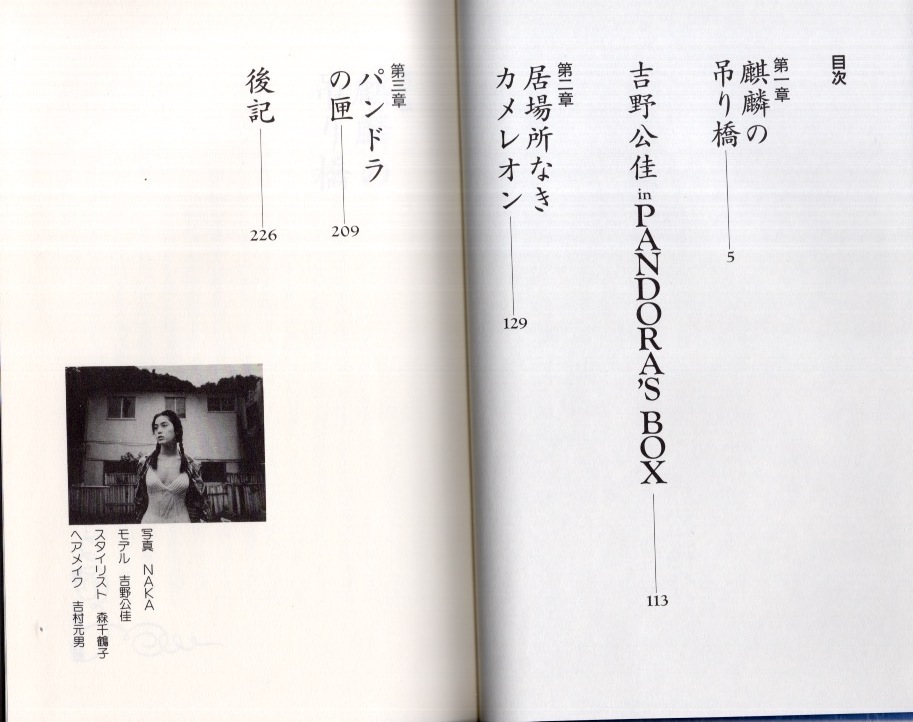 目次
第一章
麒麟の
吊り橋
5
吉野公佳 in PANDORA'S BOX
113
第二章
居場所なき
カメレオン
129
第三章
パンドラ
の匣
209
後記
226
写真 NAKA
モデル 吉野公佳
スタイリスト 森千鶴子
ヘアメイク 吉村元男